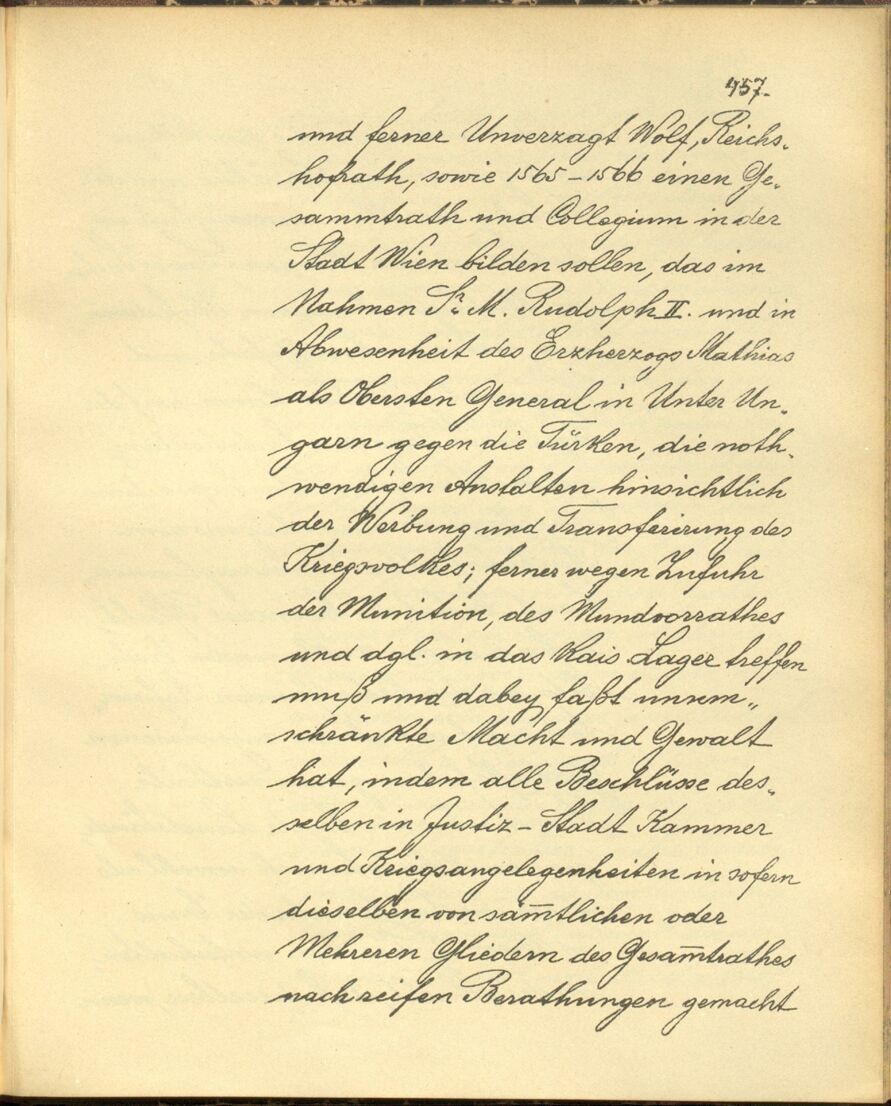 457.
und ferner Unverzagt Wolf, Reichs-
hofrath, sowie 1565 – 1566 einen Ge-
sammtrath und Collegium in der
Stadt Wien bilden sollen, das im
Nahmen Sr. M. Rudolph II. und in
Abwesenheit des Erzherzogs Mathias
als Obersten General in Unter Un-
garn gegen die Türken, die noth-
wendigen Anstalten hinsichtlich
der Werbung und Transferirung des
Kriegsvolkes; ferner wegen Zufuhr
der Munition, des Mundvorrathes
und dgl. in das Kais Lager treffen
muß und dabey faßt unum„
schränkte Macht und Gewalt
hat, indem alle Beschlüsse des-
selben in Justiz – Stadt Kammer
und Kriegsangelegenheiten in sofern
dieselben von sam̄tlichen oder
Mehreren Gliedern des Gesam̄trathes
nach reifen Berathungen gemacht